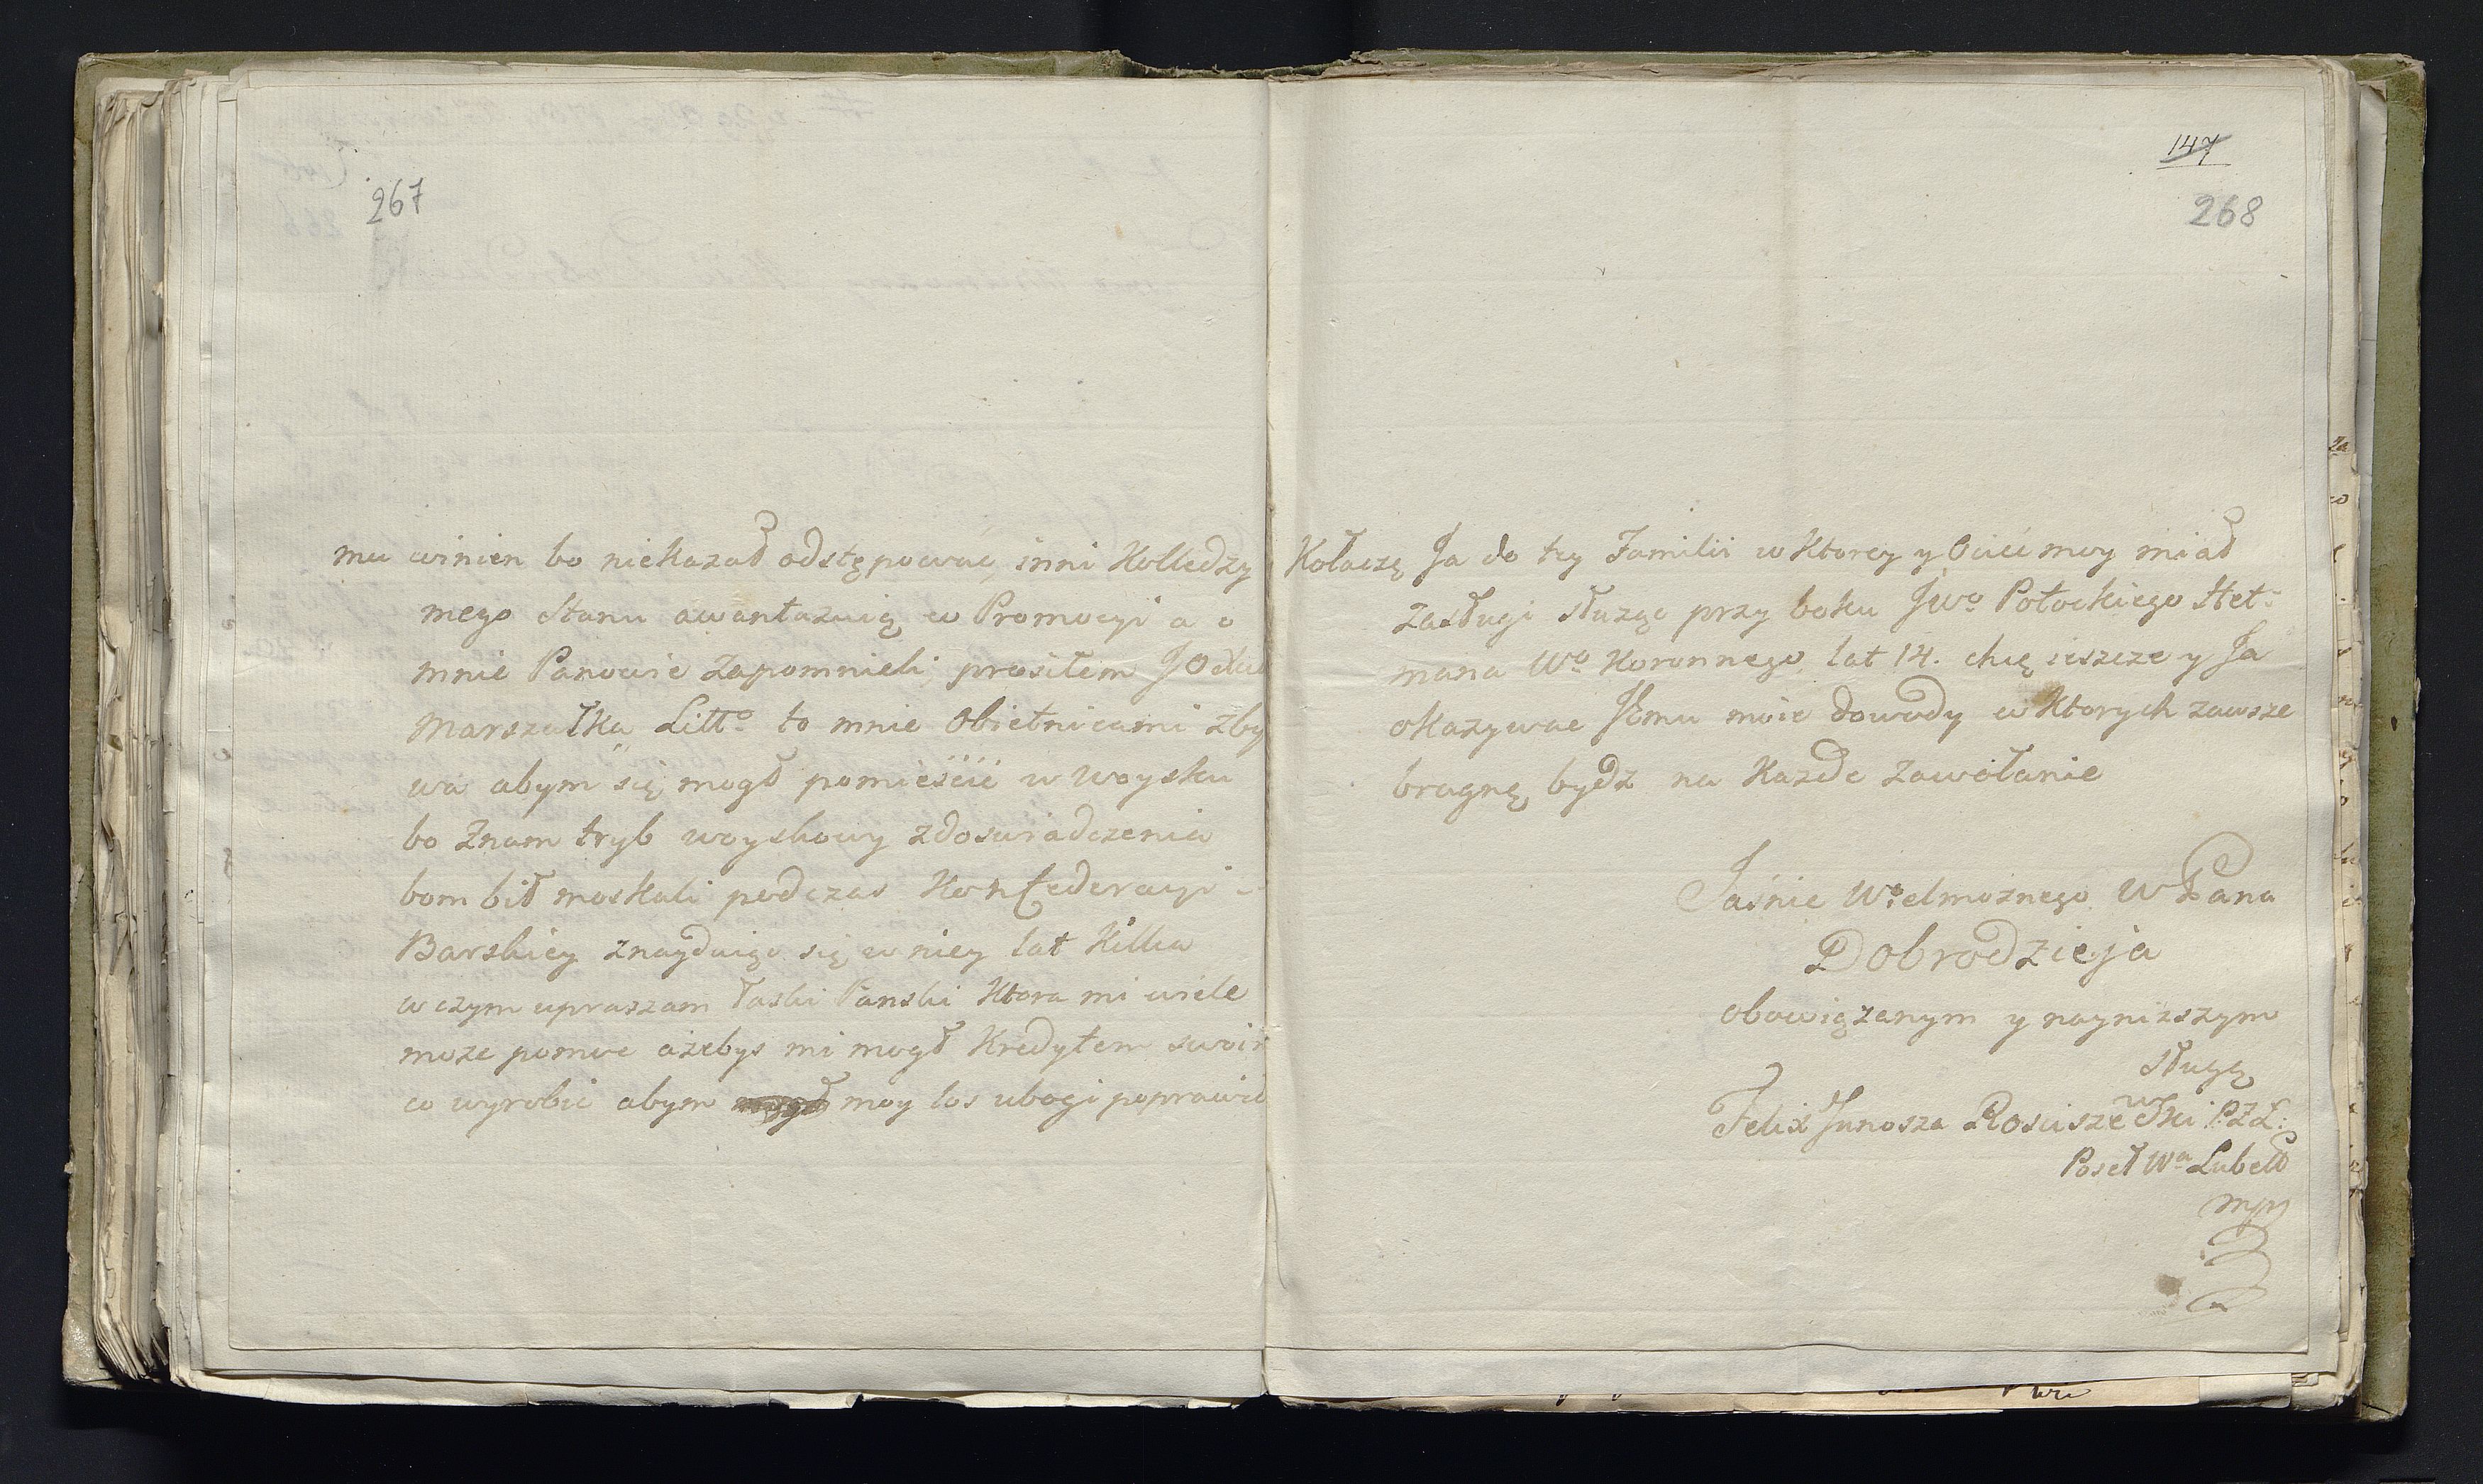 267
mu winien bo niekazał odstępować, inni Kolledzy
mego Stanu awantazuią w Promocyi a o
mnie Panowie zapomnieli, prosiłem JO
Marszałka Litt: to mnie Obietnicami zby
wa abym się mogł pomieścić w woysku
bo znam tryb woyskowy zdoswiadczenia
bom bił moskali podczas Konfederacyi
Barskiey znayduiąc się w niey lat Kilka
w czym upraszam łaski Panski Ktora mi wiele
moze pomoc ażebys mi mogł Kredytem swoim
co wyrobić abym moy los ubogi poprawił
147
268
Kołaczę Ja do tey Familii w Ktorey y Ociec moy miał
zasługi słuząc przy boku JWo Potockiego Het:
mana Wo Koronnego lat 14. chcę ieszcze y Ja
okazywac Jemu moie dowody w Ktorych zawsze
bragnę bydz na Kazde zawołanie
Jaśnie Wielmożnego W Pana
Dobrodzieja
obowiązanym y nayniższym
sługą
Felix Junosza Rosciszewski P.Z.L:
Poseł Wa Lubel
mp